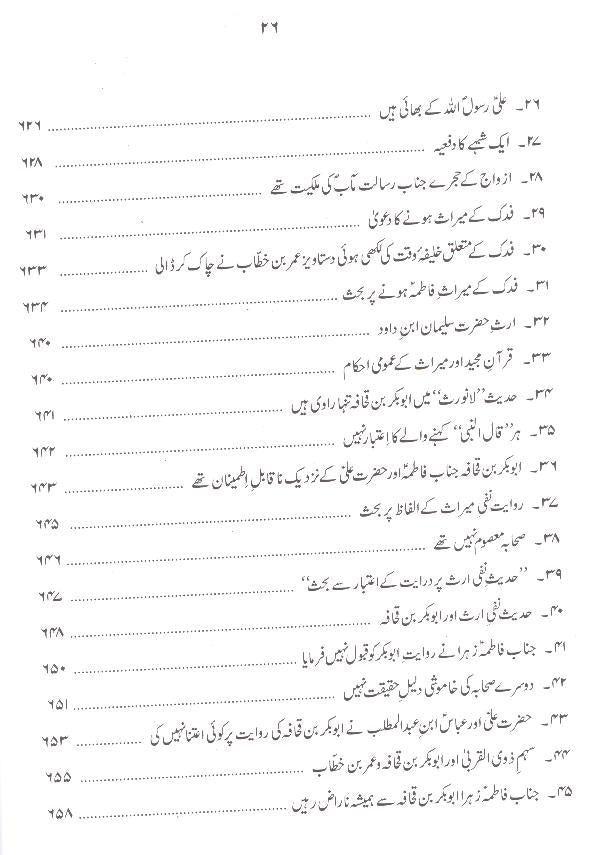 ۲۶
۲۶۔ علیؑ رسولؐ اللہ کے بھائی ہیں ........ ۶۲۶
۲۷۔ ایک شبہے کا دفعیہ ........ ۶۲۸
۲۸۔ ازواج کے حجرے جناب رسالت مآبؐ کی ملکیت تھے ........ ۶۳۰
۲۹۔ فدک کے میراث ہونے کا دعویٰ ........ ۶۳۱
۳۰۔ فدک کے متعلق خلیفۂ وقت کی لکھی ہوئی دستاویز عمر بن خطّاب نے چاک کر ڈالی ........ ۶۳۳
۳۱۔ فدک کے میراثِ فاطمہؑ ہونے پر بحث ........ ۶۳۴
۳۲۔ ارثِ حضرت سلیمان ابنِ داود ........ ۶۴۰
۳۳۔ قرآنِ مجید اور میراث کے عمومی احکام ........ ۶۴۰
۳۴۔ حدیث ’’لانورث‘‘ میں ابوبکر بن قحافہ تنہا راوی ہیں ........ ۶۴۱
۳۵۔ ہر ’’قال النبی‘‘ کہنے والے کا اعتبار نہیں ........ ۶۴۲
۳۶۔ ابوبکر بن قحافہ جناب فاطمہؑ اور حضرت علیؑ کے نزدیک ناقابلِ اطمینان تھے ........ ۶۴۳
۳۷۔ روایت نفی میراث کے الفاظ پر بحث ........ ۶۴۵
۳۸۔ صحابہ معصوم نہیں تھے ........ ۶۴۶
۳۹۔ ’’حدیثِ نفی ارث پر درایت کے اعتبار سے بحث‘‘ ........ ۶۴۷
۴۰۔ حدیث نفی ارث اور ابوبکر بن قحافہ ........ ۶۴۸
۴۱۔ جناب فاطمہؑ زہرا نے روایتِ ابوبکر کو قبول نہیں فرمایا ........ ۶۵۰
۴۲۔ دوسرے صحابہ کی خاموشی دلیلِ حقیقت نہیں ........ ۶۵۱
۴۳۔ حضرت علیؑ اور عباسؑ ابنِ عبدالمطلب نے ابوبکر بن قحافہ کی روایت پر کوئی اعتنا نہیں کی ........ ۶۵۳
۴۴۔ سہمِ ذوی القربیٰ اور ابوبکر بن قحافہ و عمر بن خطّاب ........ ۶۵۵
۴۵۔ جناب فاطمہؑ زہرا ابوبکر بن قحافہ سے ہمیشہ ناراض رہیں ........ ۶۵۸